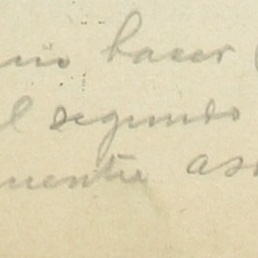 hacer
l segundo
mente as